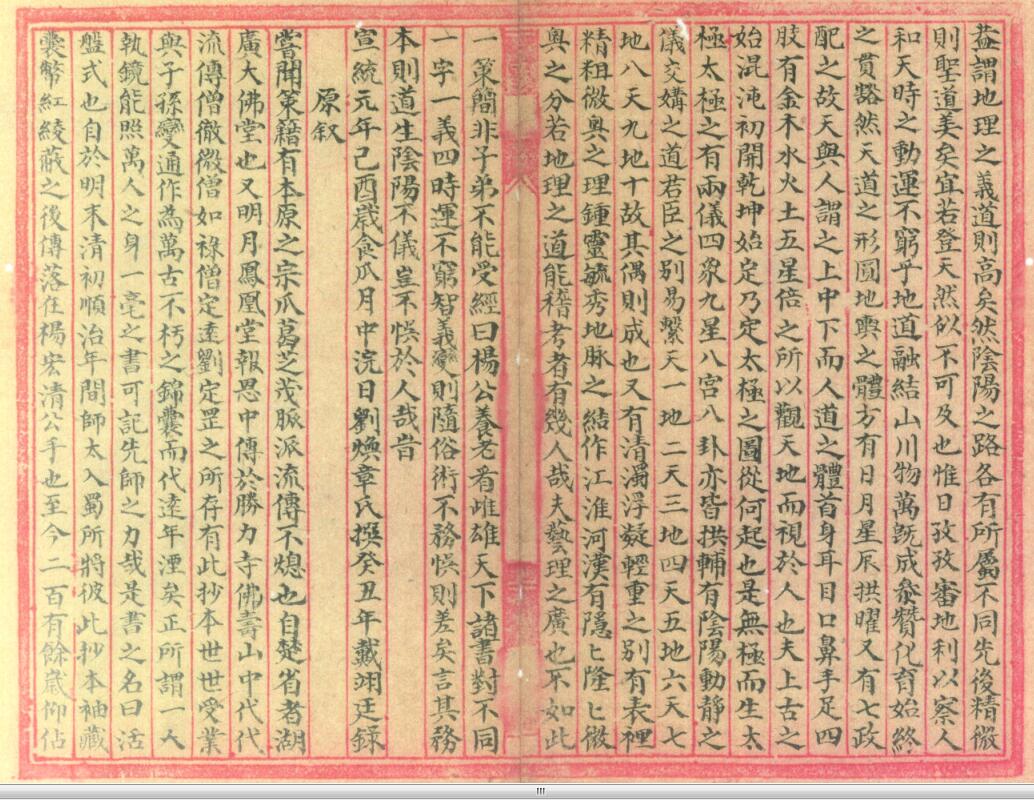 蓋謂地理之義道則高矣然陰陽之路各有所屬不同先後精微
則聖道美矣宜若登天然似不可及也惟日孜孜審地利以察人
和天時之動運不窮乎地道融結山川物萬既成參贊化育始終
之貫豁然天道之形圓地輿之體方有日月星辰拱曜又有七政
配之故天與人謂之上中下而人道之體首身耳目口鼻手足四
肢有金木水火土五星倍之所以觀天地而視於人也夫上古之
始混沌初開乾坤始定乃定太極之圖從何起也是無極而生太
極太極之有兩儀四象九星八宮八卦亦皆拱輔有陰陽動靜之
儀交媾之道若臣之別易繫天一地二天三地四天五地六天七
地八天九地十故其偶則成也又有清濁浮凝輕重之別有表裡
精粗微奧之理鍾靈毓秀地脉之結作江淮河漢有隱匕隆匕微
奥之分若地理之道能稽考者有幾人哉夫藝理之廣也不如此
一策簡非子弟不能受經曰楊公養老看雌雄天下諸書對不同
一字一義四時運不窮智義變則隨俗術不務悞則差矣言其務
本則道生陰陽不儀豈不悞於人哉旹
宣統元年己酉歲食瓜月中浣日劉煥章氏撰癸丑年戴翊廷錄
原叙
嘗聞策籍有本原之宗瓜葛芝茂脈派流傳不熄也自楚省者湖
廣大佛堂也又明月鳳凰堂報恩中傳於勝力寺佛壽山中代代
流傳僧徹微僧如祿僧定逵劉定罡之所存有此抄本世世受業
與子孫變通作為萬古不朽之錦囊而代遠年湮矣正所謂一人
執鏡能照萬人之身一毫之書可記先師之力哉是書之名曰活
盤式也自於明末清初順治年間師太入蜀所將彼此抄本袖藏
囊幣紅綾蔽之後傳落在楊宏清公手也至今二百有餘歲仰佔